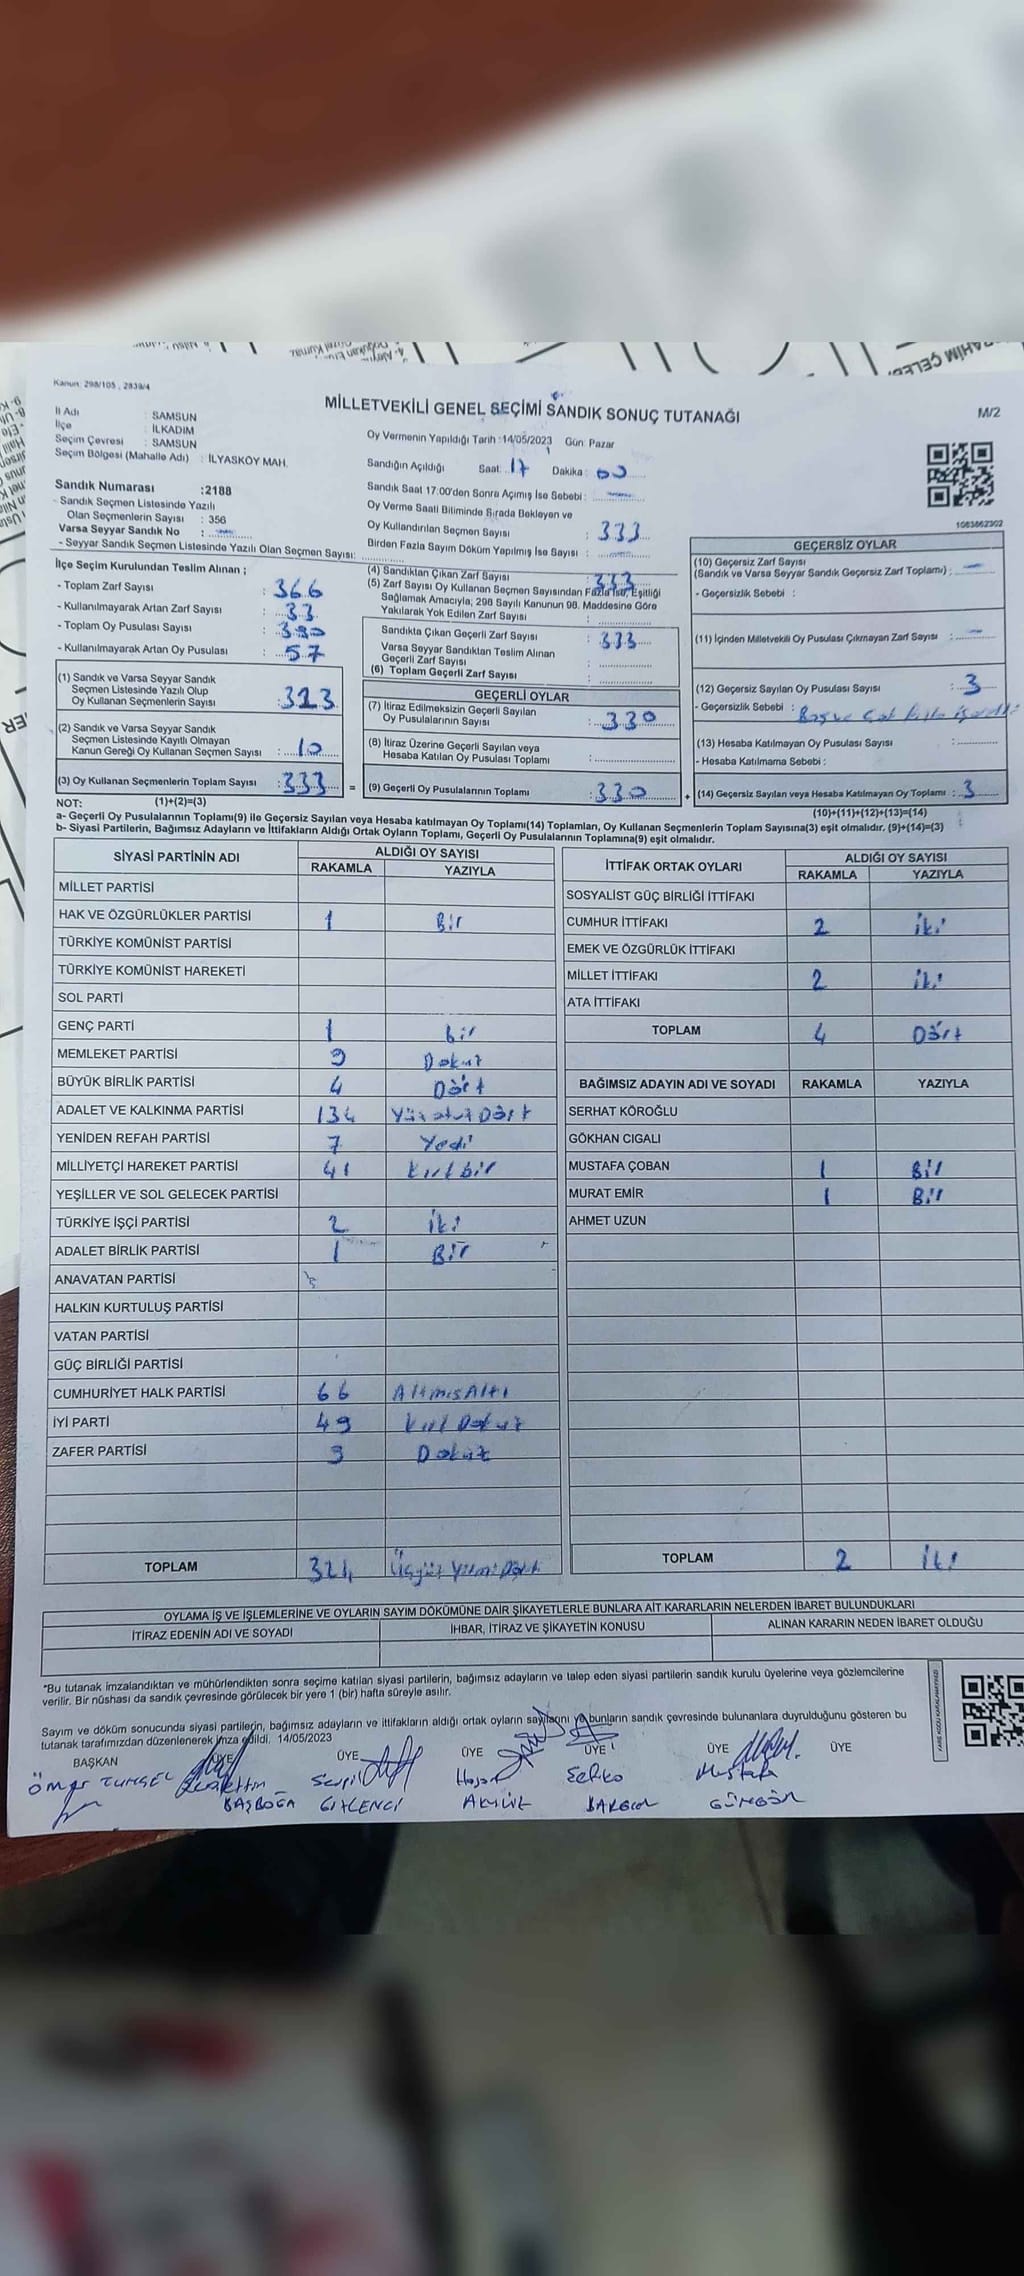 Kanun: 298/105 , 2839/4
MİLLETVEKİLİ GENEL SEÇİMİ SANDIK SONUÇ TUTANAĞI
M/2
İl Adı : SAMSUN
İlçe : İLKADIM
Seçim Çevresi : SAMSUN
Seçim Bölgesi (Mahalle Adı) : İLYASKÖY MAH.
Oy Vermenin Yapıldığı Tarih :14/05/2023 Gün: Pazar
Sandığın Açıldığı Saat: 17 Dakika: 00
Sandık Saat 17:00'den Sonra Açımış İse Sebebi :
Oy Verme Saati Biliminde Sırada Bekleyen ve
Oy Kullandırılan Seçmen Sayısı : 333
Birden Fazla Sayım Döküm Yapılmış İse Sayısı :
Sandık Numarası :2188
- Sandık Seçmen Listesinde Yazılı
Olan Seçmenlerin Sayısı : 356
Varsa Seyyar Sandık No :
- Seyyar Sandık Seçmen Listesinde Yazılı Olan Seçmen Sayısı:
1083862302
İlçe Seçim Kurulundan Teslim Alınan ;
- Toplam Zarf Sayısı : 366
- Kullanılmayarak Artan Zarf Sayısı : 33
- Toplam Oy Pusulası Sayısı : 390
- Kullanılmayarak Artan Oy Pusulası : 57
(1) Sandık ve Varsa Seyyar Sandık
Seçmen Listesinde Yazılı Olup
Oy Kullanan Seçmenlerin Sayısı : 323
(2) Sandık ve Varsa Seyyar Sandık
Seçmen Listesinde Kayıtlı Olmayan
Kanun Gereği Oy Kullanan Seçmen Sayısı : 10
(3) Oy Kullanan Seçmenlerin Toplam Sayısı : 333 =
(4) Sandıktan Çıkan Zarf Sayısı : 333
(5) Zarf Sayısı Oy Kullanan Seçmen Sayısından Fazla İse, Eşitliği
Sağlamak Amacıyla; 298 Sayılı Kanunun 98. Maddesine Göre
Yakılarak Yok Edilen Zarf Sayısı :
Sandıkta Çıkan Geçerli Zarf Sayısı : 333
Varsa Seyyar Sandıktan Teslim Alınan
Geçerli Zarf Sayısı :
(6) Toplam Geçerli Zarf Sayısı :
GEÇERLİ OYLAR
(7) İtiraz Edilmeksizin Geçerli Sayılan
Oy Pusulalarının Sayısı : 330
(8) İtiraz Üzerine Geçerli Sayılan veya
Hesaba Katılan Oy Pusulası Toplamı :
(9) Geçerli Oy Pusulalarının Toplamı : 330 +
GEÇERSİZ OYLAR
(10) Geçersiz Zarf Sayısı
(Sandık ve Varsa Seyyar Sandık Geçersiz Zarf Toplamı) :
- Geçersizlik Sebebi :
(11) İçinden Milletvekili Oy Pusulası Çıkmayan Zarf Sayısı :
(12) Geçersiz Sayılan Oy Pusulası Sayısı : 3
- Geçersizlik Sebebi :
(13) Hesaba Katılmayan Oy Pusulası Sayısı :
- Hesaba Katılmama Sebebi :
(14) Geçersiz Sayılan veya Hesaba Katılmayan Oy Toplamı : 3
NOT: (1)+(2)=(3) (10)+(11)+(12)+(13)=(14)
a- Geçerli Oy Pusulalarının Toplamı(9) ile Geçersiz Sayılan veya Hesaba katılmayan Oy Toplamı(14) Toplamları, Oy Kullanan Seçmenlerin Toplam Sayısına(3) eşit olmalıdır. (9)+(14)=(3)
b- Siyasi Partilerin, Bağımsız Adayların ve İttifakların Aldığı Ortak Oyların Toplamı, Geçerli Oy Pusulalarının Toplamına(9) eşit olmalıdır.
SİYASİ PARTİNİN ADI ALDIĞI OY SAYISI
RAKAMLA YAZIYLA
MİLLET PARTİSİ
HAK VE ÖZGÜRLÜKLER PARTİSİ 1 Bir
TÜRKİYE KOMÜNİST PARTİSİ
TÜRKİYE KOMÜNİST HAREKETİ
SOL PARTİ
GENÇ PARTİ 1 Bir
MEMLEKET PARTİSİ 9 Dokuz
BÜYÜK BİRLİK PARTİSİ 4 Dört
ADALET VE KALKINMA PARTİSİ 134 Yüzotuz Dört
YENİDEN REFAH PARTİSİ 7 Yedi
MİLLİYETÇİ HAREKET PARTİSİ 41 Kırkbir
YEŞİLLER VE SOL GELECEK PARTİSİ
TÜRKİYE İŞÇİ PARTİSİ 2 İki
ADALET BİRLİK PARTİSİ 1 Bir
ANAVATAN PARTİSİ
HALKIN KURTULUŞ PARTİSİ
VATAN PARTİSİ
GÜÇ BİRLİĞİ PARTİSİ
CUMHURİYET HALK PARTİSİ 66 AltmışAltı
İYİ PARTİ 49 Kırk Dokuz
ZAFER PARTİSİ 9 Dokuz
TOPLAM 324 Üçyüz Yirmi Dört
İTTİFAK ORTAK OYLARI ALDIĞI OY SAYISI
RAKAMLA YAZIYLA
SOSYALİST GÜÇ BİRLİĞİ İTTİFAKI
CUMHUR İTTİFAKI 2 İki
EMEK VE ÖZGÜRLÜK İTTİFAKI
MİLLET İTTİFAKI 2 İki
ATA İTTİFAKI
TOPLAM 4 Dört
BAĞIMSIZ ADAYIN ADI VE SOYADI RAKAMLA YAZIYLA
SERHAT KÖROĞLU
GÖKHAN CIGALI
MUSTAFA ÇOBAN 1 Bir
MURAT EMİR 1 Bir
AHMET UZUN
TOPLAM 2 İki
OYLAMA İŞ VE İŞLEMLERİNE VE OYLARIN SAYIM DÖKÜMÜNE DAİR ŞİKAYETLERLE BUNLARA AİT KARARLARIN NELERDEN İBARET BULUNDUKLARI
İTİRAZ EDENİN ADI VE SOYADI İHBAR, İTİRAZ VE ŞİKAYETİN KONUSU ALINAN KARARIN NEDEN İBARET OLDUĞU
*Bu tutanak imzalandıktan ve mühürlendikten sonra seçime katılan siyasi partilerin, bağımsız adayların ve talep eden siyasi partilerin sandık kurulu üyelerine veya gözlemcilerine
verilir. Bir nüshası da sandık çevresinde görülecek bir yere 1 (bir) hafta süreyle asılır.
Sayım ve döküm sonucunda siyasi partilerin, bağımsız adayların ve ittifakların aldığı ortak oyların sayılarını ve bunların sandık çevresinde bulunanlara duyrulduğunu gösteren bu
tutanak tarafımızdan düzenlenerek imza edildi. 14/05/2023
BAŞKAN ÜYE ÜYE ÜYE ÜYE ÜYE ÜYE
Ömer Sevgi Hasan Mustafa
BAŞBOĞA GÜNGÖR